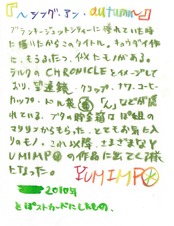 『～シング・アン・autumn～』
ブランキージェットシティーに憧れていた時
に描いたからこのタイトル。キョウダイ作
に、そうぶたつ、似たモノがある。
テルタのCHRONICLEをイメージして
おり、望遠鏡、クリップ、ナフ、コーヒー
カップ、ドル袋、「ん」などが隠
れている。ブタの貯金箱はぱ組の
マタリラからもらった。とてもお気に入
りのモノ。これ以降、さまざまなY
UMIMPOの作品に出てくる様
になった。 YUMIMPO
2010年
とぽストカードにしたもの。